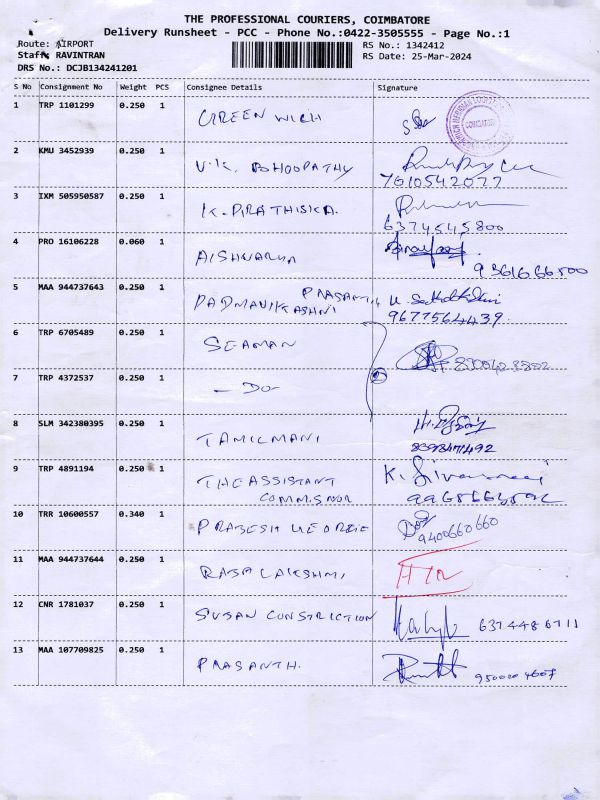 THE PROFESSIONAL COURIERS, COIMBATORE
Delivery Runsheet - PCC - Phone No.:0422-3505555 - Page No.:1
Route: AIRPORT
RS No.: 1342412
Staff: RAVINTRAN
RS Date: 25-Mar-2024
DRS No.: DCJB134241201
S No Consignment No Weight PCS Consignee Details Signature
1 TRP 1101299 0.250 1 GREEN WICH
COIMBATORE
2 KMU 3452939 0.250 1 V.K. BHOOPATHY
7010542077
3 IXM 505950587 0.250 1 K. PRATHISKA.
6374545800
4 PRO 16106228 0.060 1 AISHWARYA
9361666500
5 MAA 944737643 0.250 1 PRASANTH
PADMAVIKASHNI
9677564439
6 TRP 6705489 0.250 1 SEAMAN
7 TRP 4372537 0.250 1 - DO -
8 SLM 342380395 0.250 1 TAMILMANI
9 TRP 4891194 0.250 1 THE ASSISTANT
COMMISNOR
K. Sivasamy
10 TRR 10600557 0.340 1 PRABESH GEORGE
9400660660
11 MAA 944737644 0.250 1 RAJALAKSHMI
12 CNR 1781037 0.250 1 SUSAN CONSTRICTION
637448 6711
13 MAA 107709825 0.250 1 PRASANTH.
950020 4607